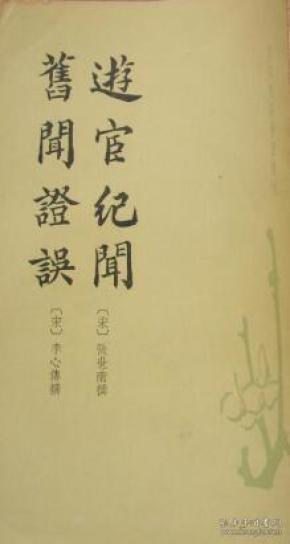 遊宦紀聞
〔宋〕張世南撰
舊聞證誤
〔宋〕李心傳撰